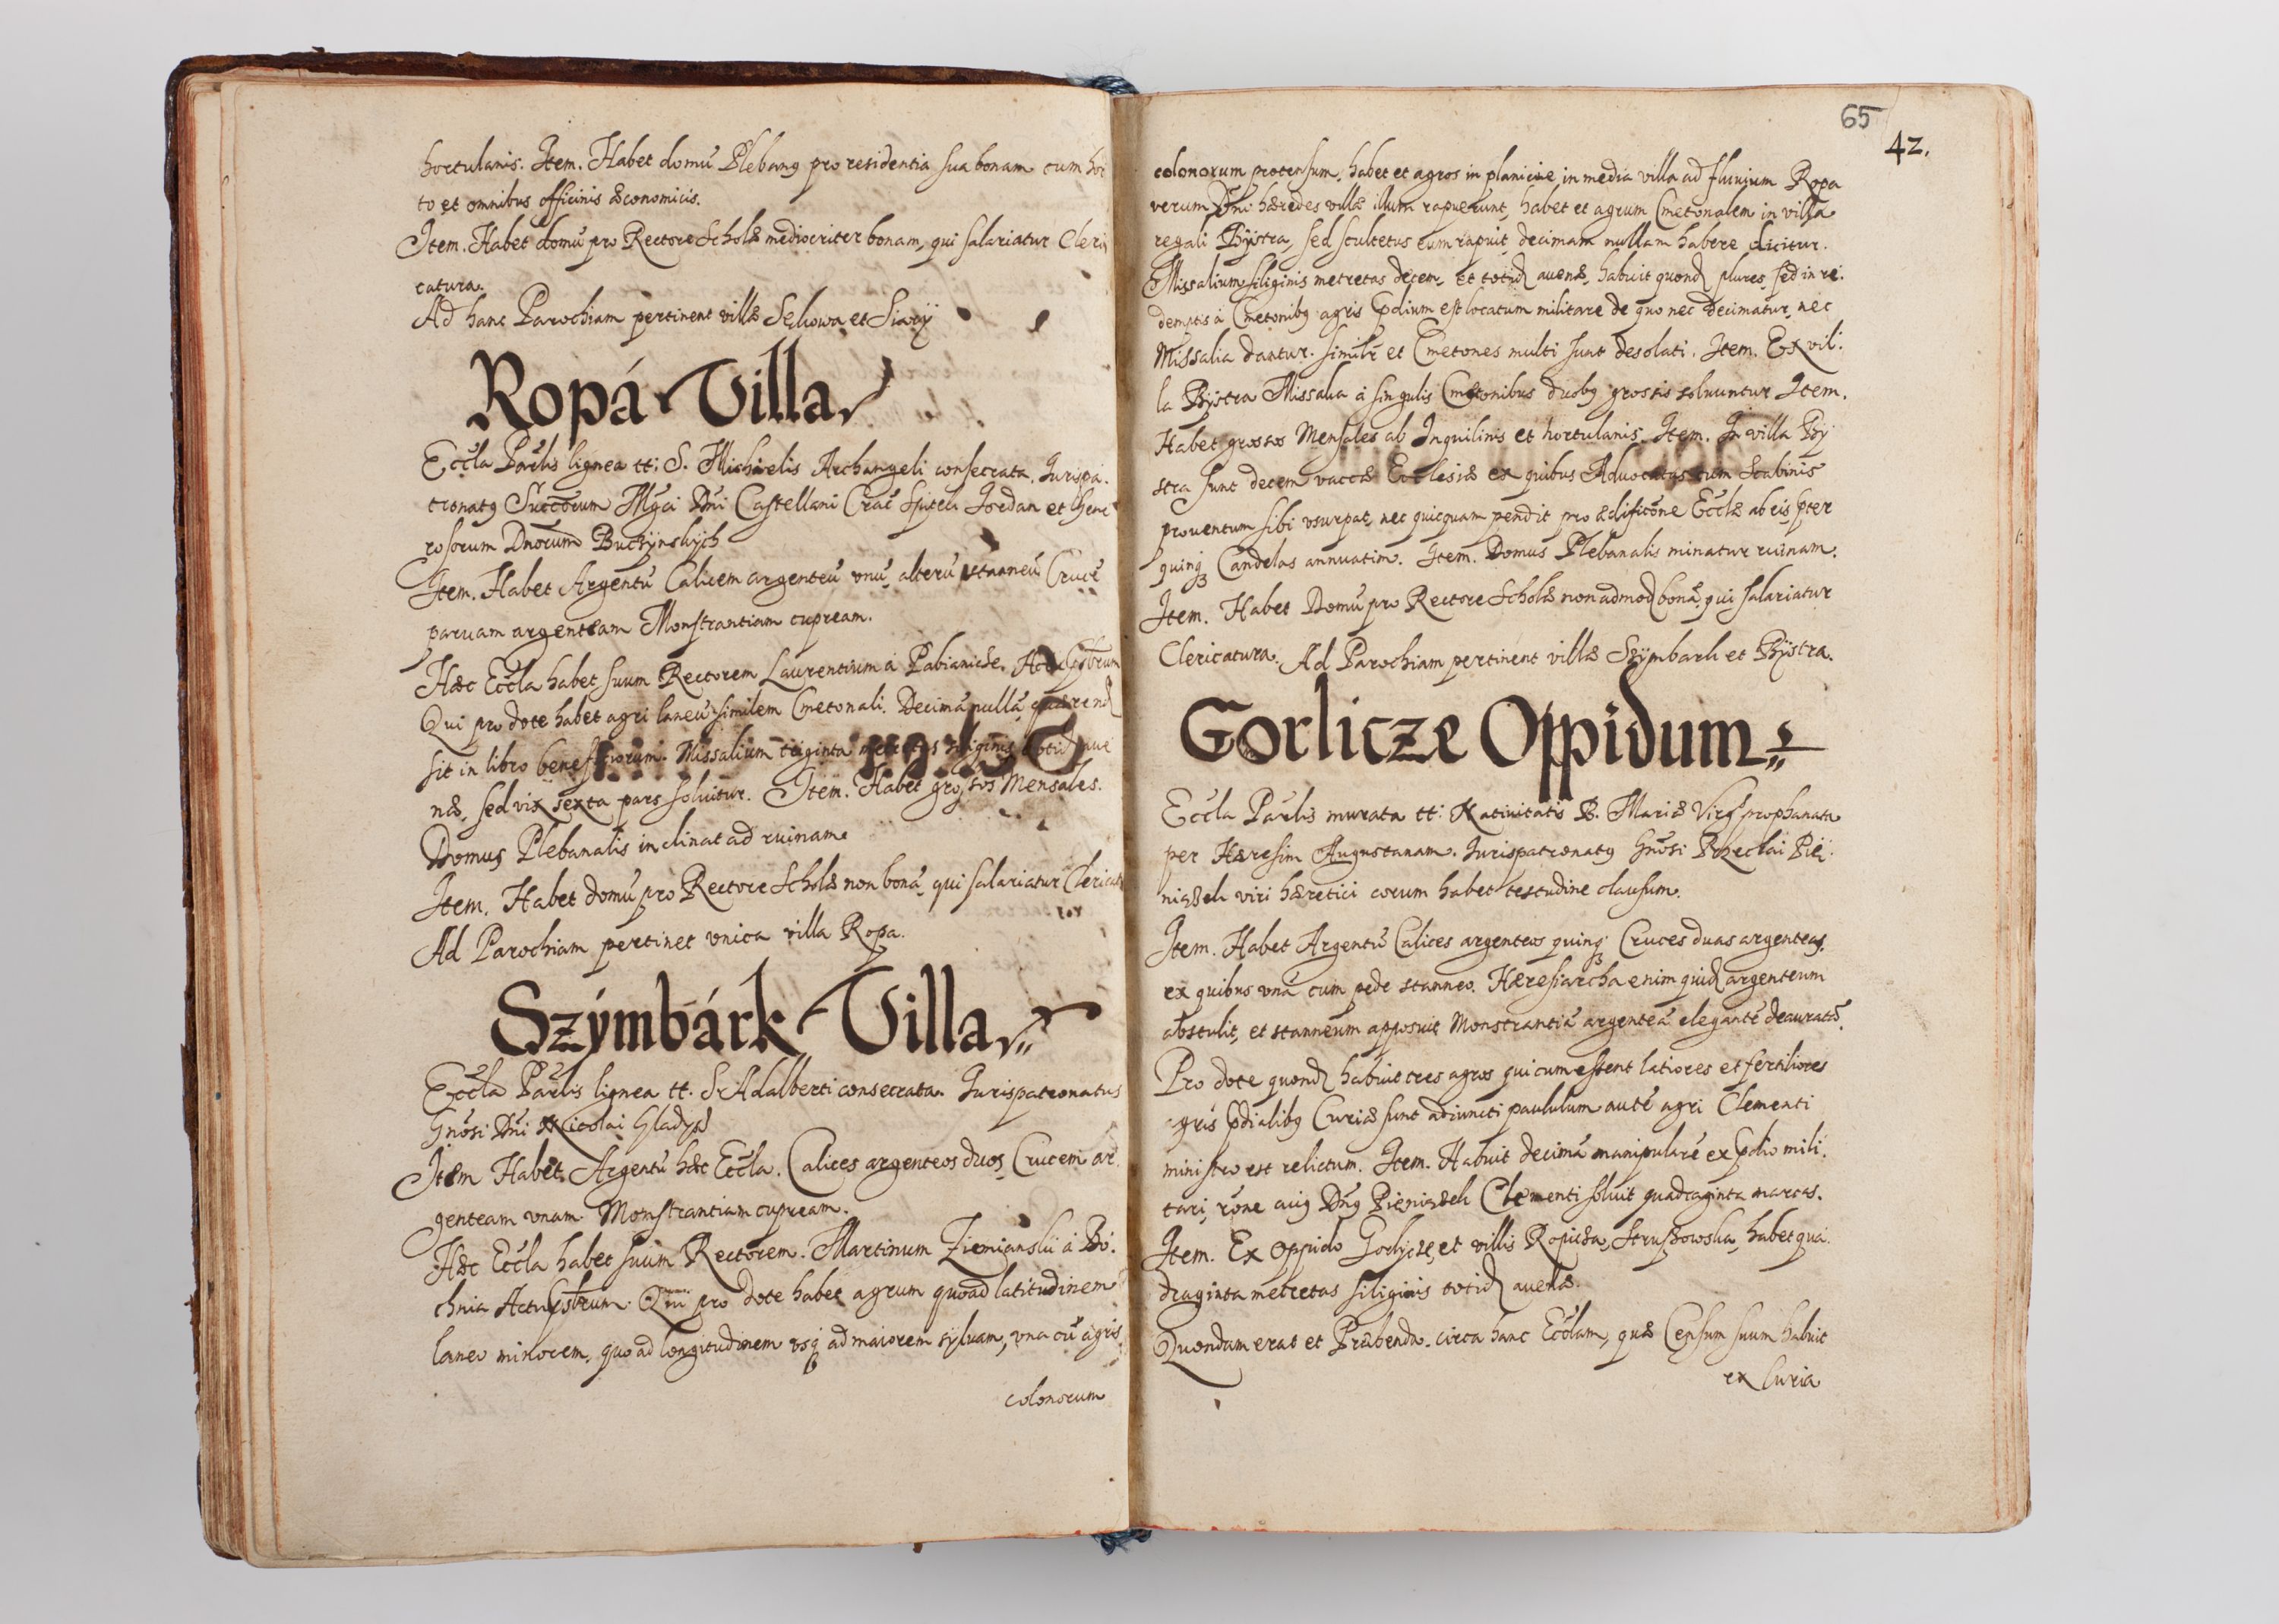 hortulanis. Item. Habet domũ Plebanꝰ pro residentia sua bonam cum hor
to et omnibus officinis æconomicis.
Item. Habet domũ pro Rectore Scholæ mediocriter bonam, qui salariatur Cleri
catura.
Ad hanc Parochiam pertinent villæ Sękowa et Siary
Ropá Villa
Eccła Parłis lignea tt: S. Michaelis Archangeli consecrata. Jurispa.
tronatꝰ Succorum Mgci Dni Castellani Crac Spitek Jordan et Gene
rosorum Dnorum Buczynskych
Item. Habet Argentũ Calicem argenteũ vnũ, alterũ stanneũ Crucẽ
paruam argenteam Monstrantiam cupream.
Hæc Eccła habet suum Rectorem Laurentium à Pabianicze
Qui pro dote habet agri laneũ similem Cmetonali. Decimã nullã, quærend
sit in libro beneficiorum. Missalium triginta metretas siliginis totid aue
næ, sed vix sexta pars soluitur. Item. Habet grossos Mensales.
Domus Plebanalis inclinat ad ruinam.
Item. Habet domũ pro Rectore Scholæ non bonã, qui salariatur Clericat
Ad Parochiam pertinet vnica villa Ropa.
Szýmbárk Villa
Eccła Parłis lignea tt. S. Adalberti consecrata. Jurispatronatus
Gnosi Dni Nicolai Gladysz
Item Habet Argentũ hæc Eccła. Calices argenteos duos, Crucem ar.
genteam vnam. Monstrantiam cupream.
Hæc Eccła habet suum Rectorem. Martinum Ziemianski à Bo.
chnia Actu Pbrum. Qui pro dote habet agrum quoad latitudinem
laneo minorem, quoad longitudinem vsq ad maiorem syluam, vna cũ agris
colonorum
65
42.
colonorum protensum, habet et agros in planicie, in media villa ad fluuium Ropa
verum Dni hæredes villæ illum rapuerunt, habet et agrum Cmetonalem in villa
regali Bystra, sed scultetus eum rapuit, decimam nullam habere dicitur.
Missalium siliginis metretas decem, et totid auenæ, habuit quond plures, sed in re.
demptis à Cmetonibꝰ agris Pdium est locatum militare de quo nec decimatur, nec
Missalia dantur. similr et Cmetones multi sunt desolati. Item. Ex vil:
la Bystra Missalia à singulis Cmetonibus duobꝰ grossis soluuntur Item.
Habet grossos Mensales ab Inquilinis et hortulanis. Item. In villa By
stra sunt decem vaccæ Ecclesiæ ex quibus Aduocatus cum Scabinis
prouentum sibi vsurpat, nec quicquam pendit pro ædificõne Eccłæ ab eis, pter
quinq Candelas annuatim. Item. Domus Plebanalis minatur ruinam.
Item. Habet Domũ pro Rectore Scholæ non admod bonã, qui salariatur
Clericatura. Ad Parochiam pertinent villæ Szymbark et Bystra.
Gorlicze Oppidum
Eccła Parłis murata tt: Natiuitatis B. Mariæ Virg prophanata
per Hæresim Augustanam. Jurispatronatꝰ Gnosi Przeclai Pie.
niązek viri hæretici corum habet testudine clausum.
Item. Habet Argentũ Calices argenteos quinq Cruces duas argenteas,
ex quibus vna cum pede stanneo. Hæresiarcha enim quid argenteum
abstulit, et stanneum apposuit Monstrantiã argenteã elegantẽ deauratã.
Pro dote quond habuit tres agros qui cum essent latiores et fertiliores
agris pdialibꝰ Curiæ sunt adiuncti paululum autẽ agri Clementi
ministro est relictum. Item. Habuit decimã manipularẽ ex Pdio mili.
tari, rõne cuiꝰ Dnꝰ Pieniązek Clementi soluit quadraginta marcas.
Item. Ex Oppido Gorlycze, et villis Ropicza, Stroszowska, habet qua.
draginta metretas siliginis totid auenæ.
Quondam erat et Præbenda circa hanc Eccłam, quæ Censum suum habuit
ex Curia